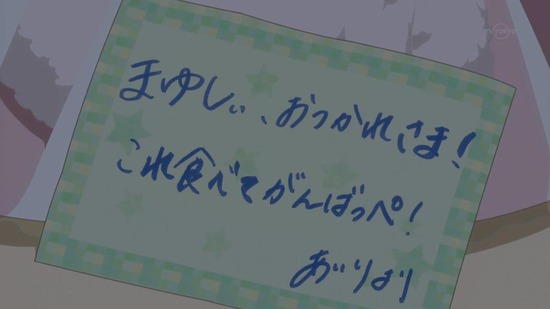 まゆしぃ、おつかれさま!
これ食べてがんばっぺ!
あいりより